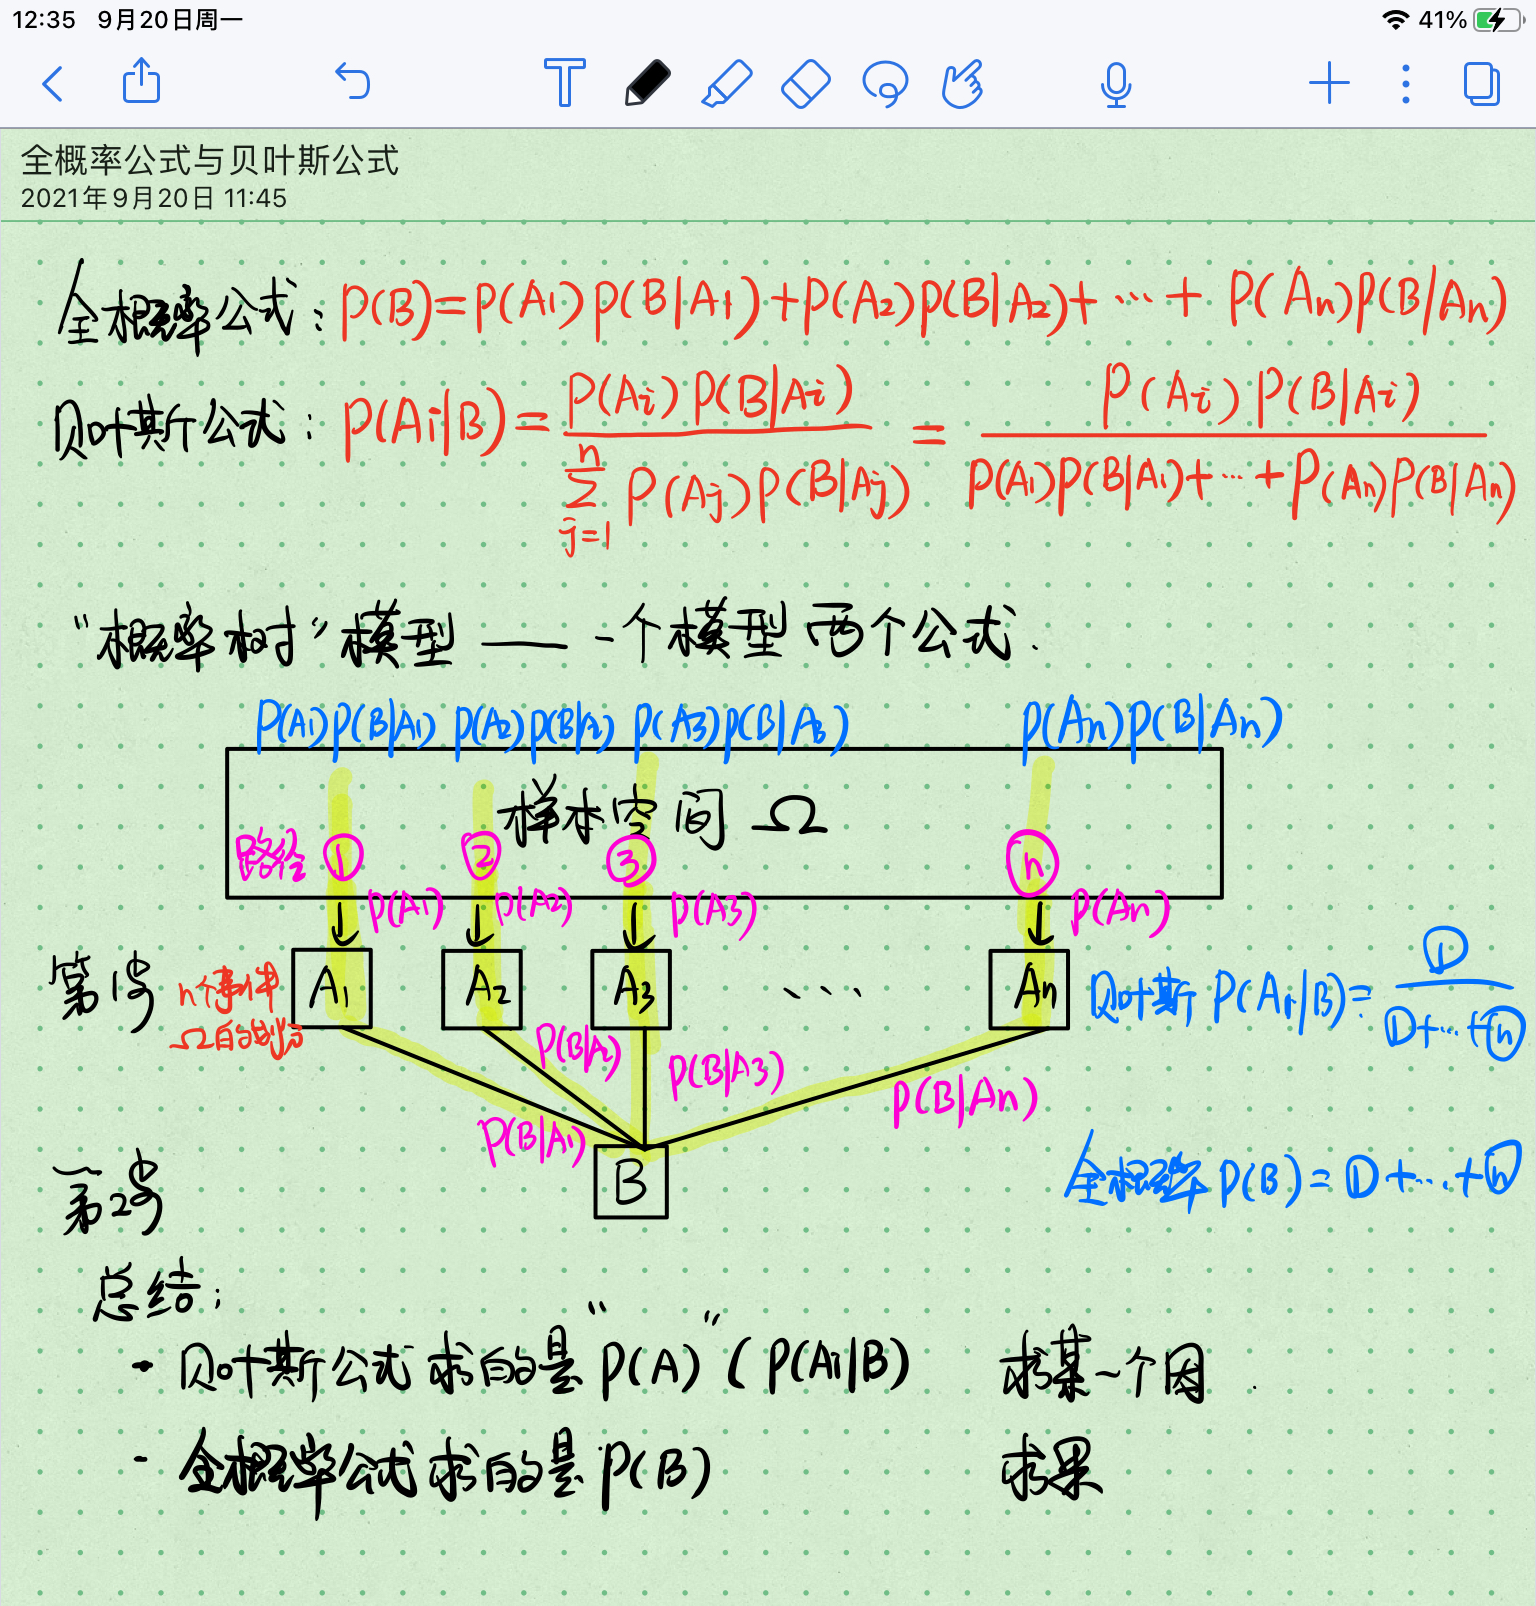 12:35 9月20日周一 41%
全概率公式与贝叶斯公式
2021年9月20日 11:45
全概率公式: P(B)=P(A1)P(B|A1)+P(A2)P(B|A2)+ ··· + P(An)P(B|An)
贝叶斯公式: P(Ai|B) = P(Ai)P(B|Ai) / n∑j=1 P(Aj)P(B|Aj) = P(Ai)P(B|Ai) / P(A1)P(B|A1)+ ··· +P(An)P(B|An)
“概率树”模型 —— 一个模型两个公式.
P(A1)P(B|A1) P(A2)P(B|A2) P(A3)P(B|A3) P(An)P(B|An)
样本空间 Ω
路径 ① ② ③ ⓝ
P(A1) P(A2) P(A3) P(An)
第1步 n个事件 A1 A2 A3 ··· An
Ω的划分
贝叶斯 P(A1|B)= ① / ①+···+ⓝ
P(B|A1) P(B|A2) P(B|A3) P(B|An)
第2步 B
全概率 P(B)=①+···+ⓝ
总结:
- 贝叶斯公式求的是“P(A)”(P(Ai|B) 求某一个因.
- 全概率公式求的是P(B) 求果